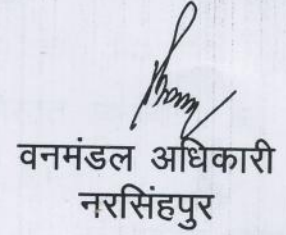 वनमंडल अधिकारी
नरसिंहपुर